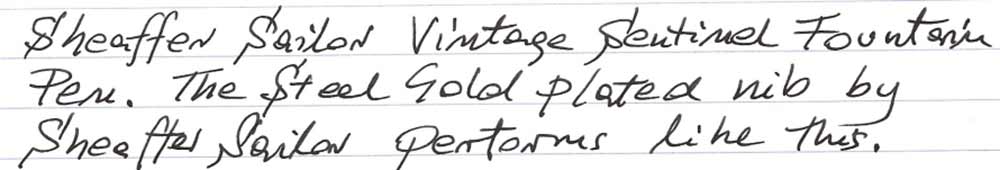 Sheaffer Sailor Vintage Sentinel Fountain
Pen. The Steel Gold plated nib by
Sheaffer Sailor performs like this.